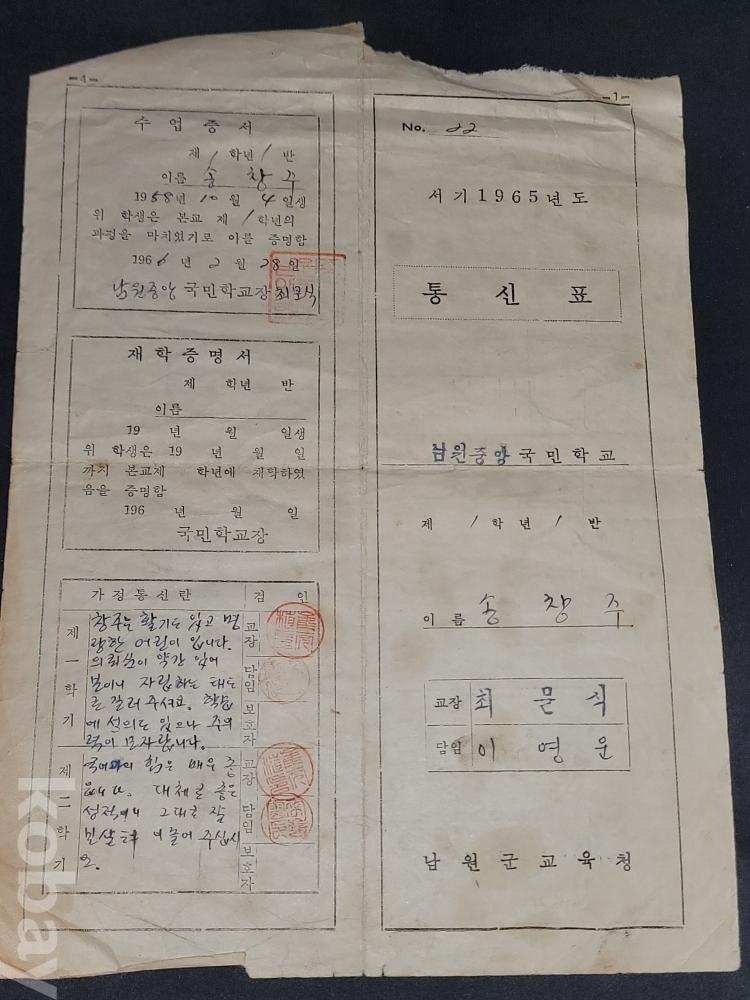 -4-
수 업 증 서
제 1 학년 1 반
이름 송 창 주
1958년 10 월 4 일생
위 학생은 본교 제 1 학년의
과정을 마치었기로 이를 증명함
1966 년 2 월 28 일
남원중앙 국민학교장 최문식
재 학 증 명 서
제 학년 반
이름
19 년 월 일생
위 학생은 19 년 월 일
까지 본교제 학년에 재학하였
음을 증명함
196 년 월 일
국민학교장
가 정 통 신 란 검 인
제 일 학 기
창주는 활기도 있고 명
랑한 어린이 입니다.
의뢰심이 약간 있어
보이니 자립하는 태도
를 길러 주셔요. 학습
에 성의도 있으나 주의
력이 모자랍니다.
교장
담임
보호자
제 二 학 기
힘은 매우 좋
습니다. 대체로 좋은
성적이니 그대로 잘
보살펴 이끌어 주십시
오.
교장
담임
보호자
-1-
No. 22
서 기 1 9 6 5 년 도
통 신 표
남원중앙 국 민 학 교
제 1 학 년 1 반
이 름 송 창 주
교장 최 문 식
담임 이 영 운
남 원 군 교 육 청
kobay